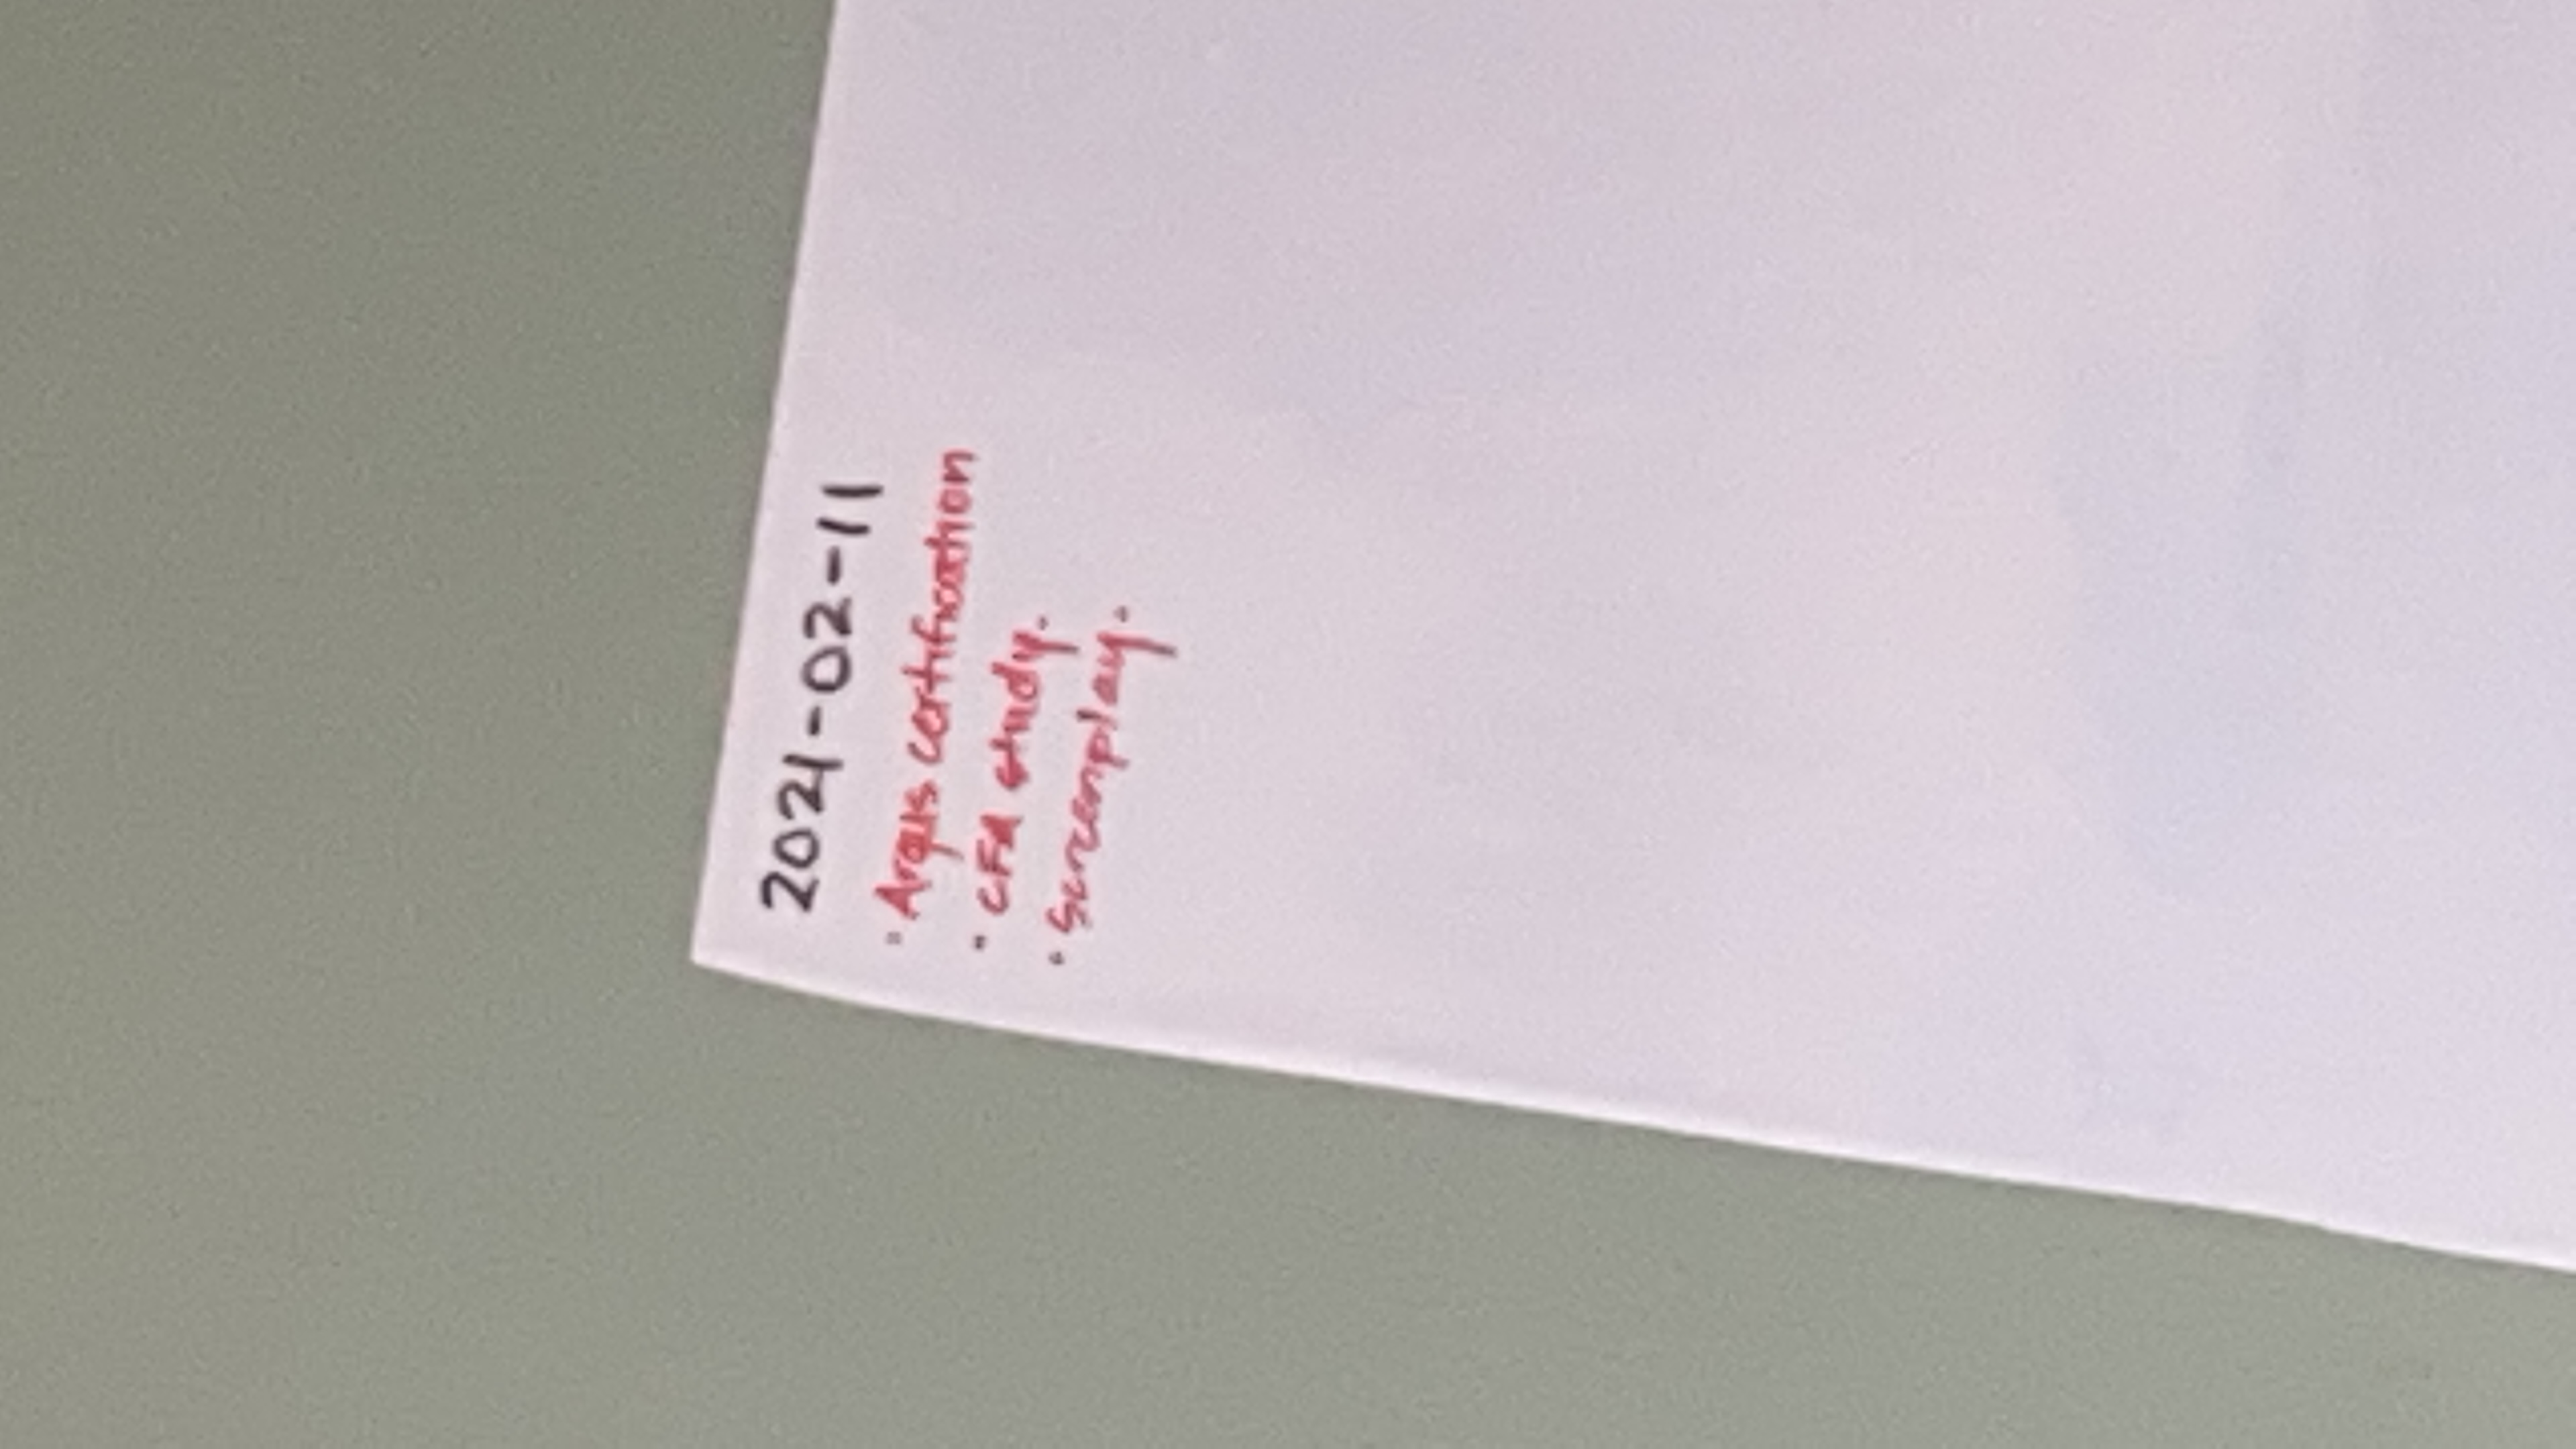 2021-02-11
· Argus certification
· CFA study.
· Screenplay.